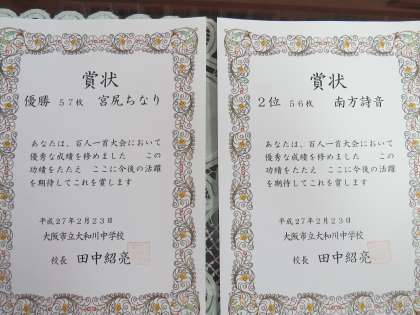 賞状
優勝 57枚 宮尻ちなり
あなたは、百人一首大会において
優秀な成績を修めました この
功績をたたえ ここに今後の活躍
を期待してこれを賞します
平成27年2月23日
大阪市立大和川中学校
校長 田中紹亮
賞状
2位 56枚 南方詩音
あなたは、百人一首大会において
優秀な成績を修めました この
功績をたたえ ここに今後の活躍
を期待してこれを賞します
平成27年2月23日
大阪市立大和川中学校
校長 田中紹亮